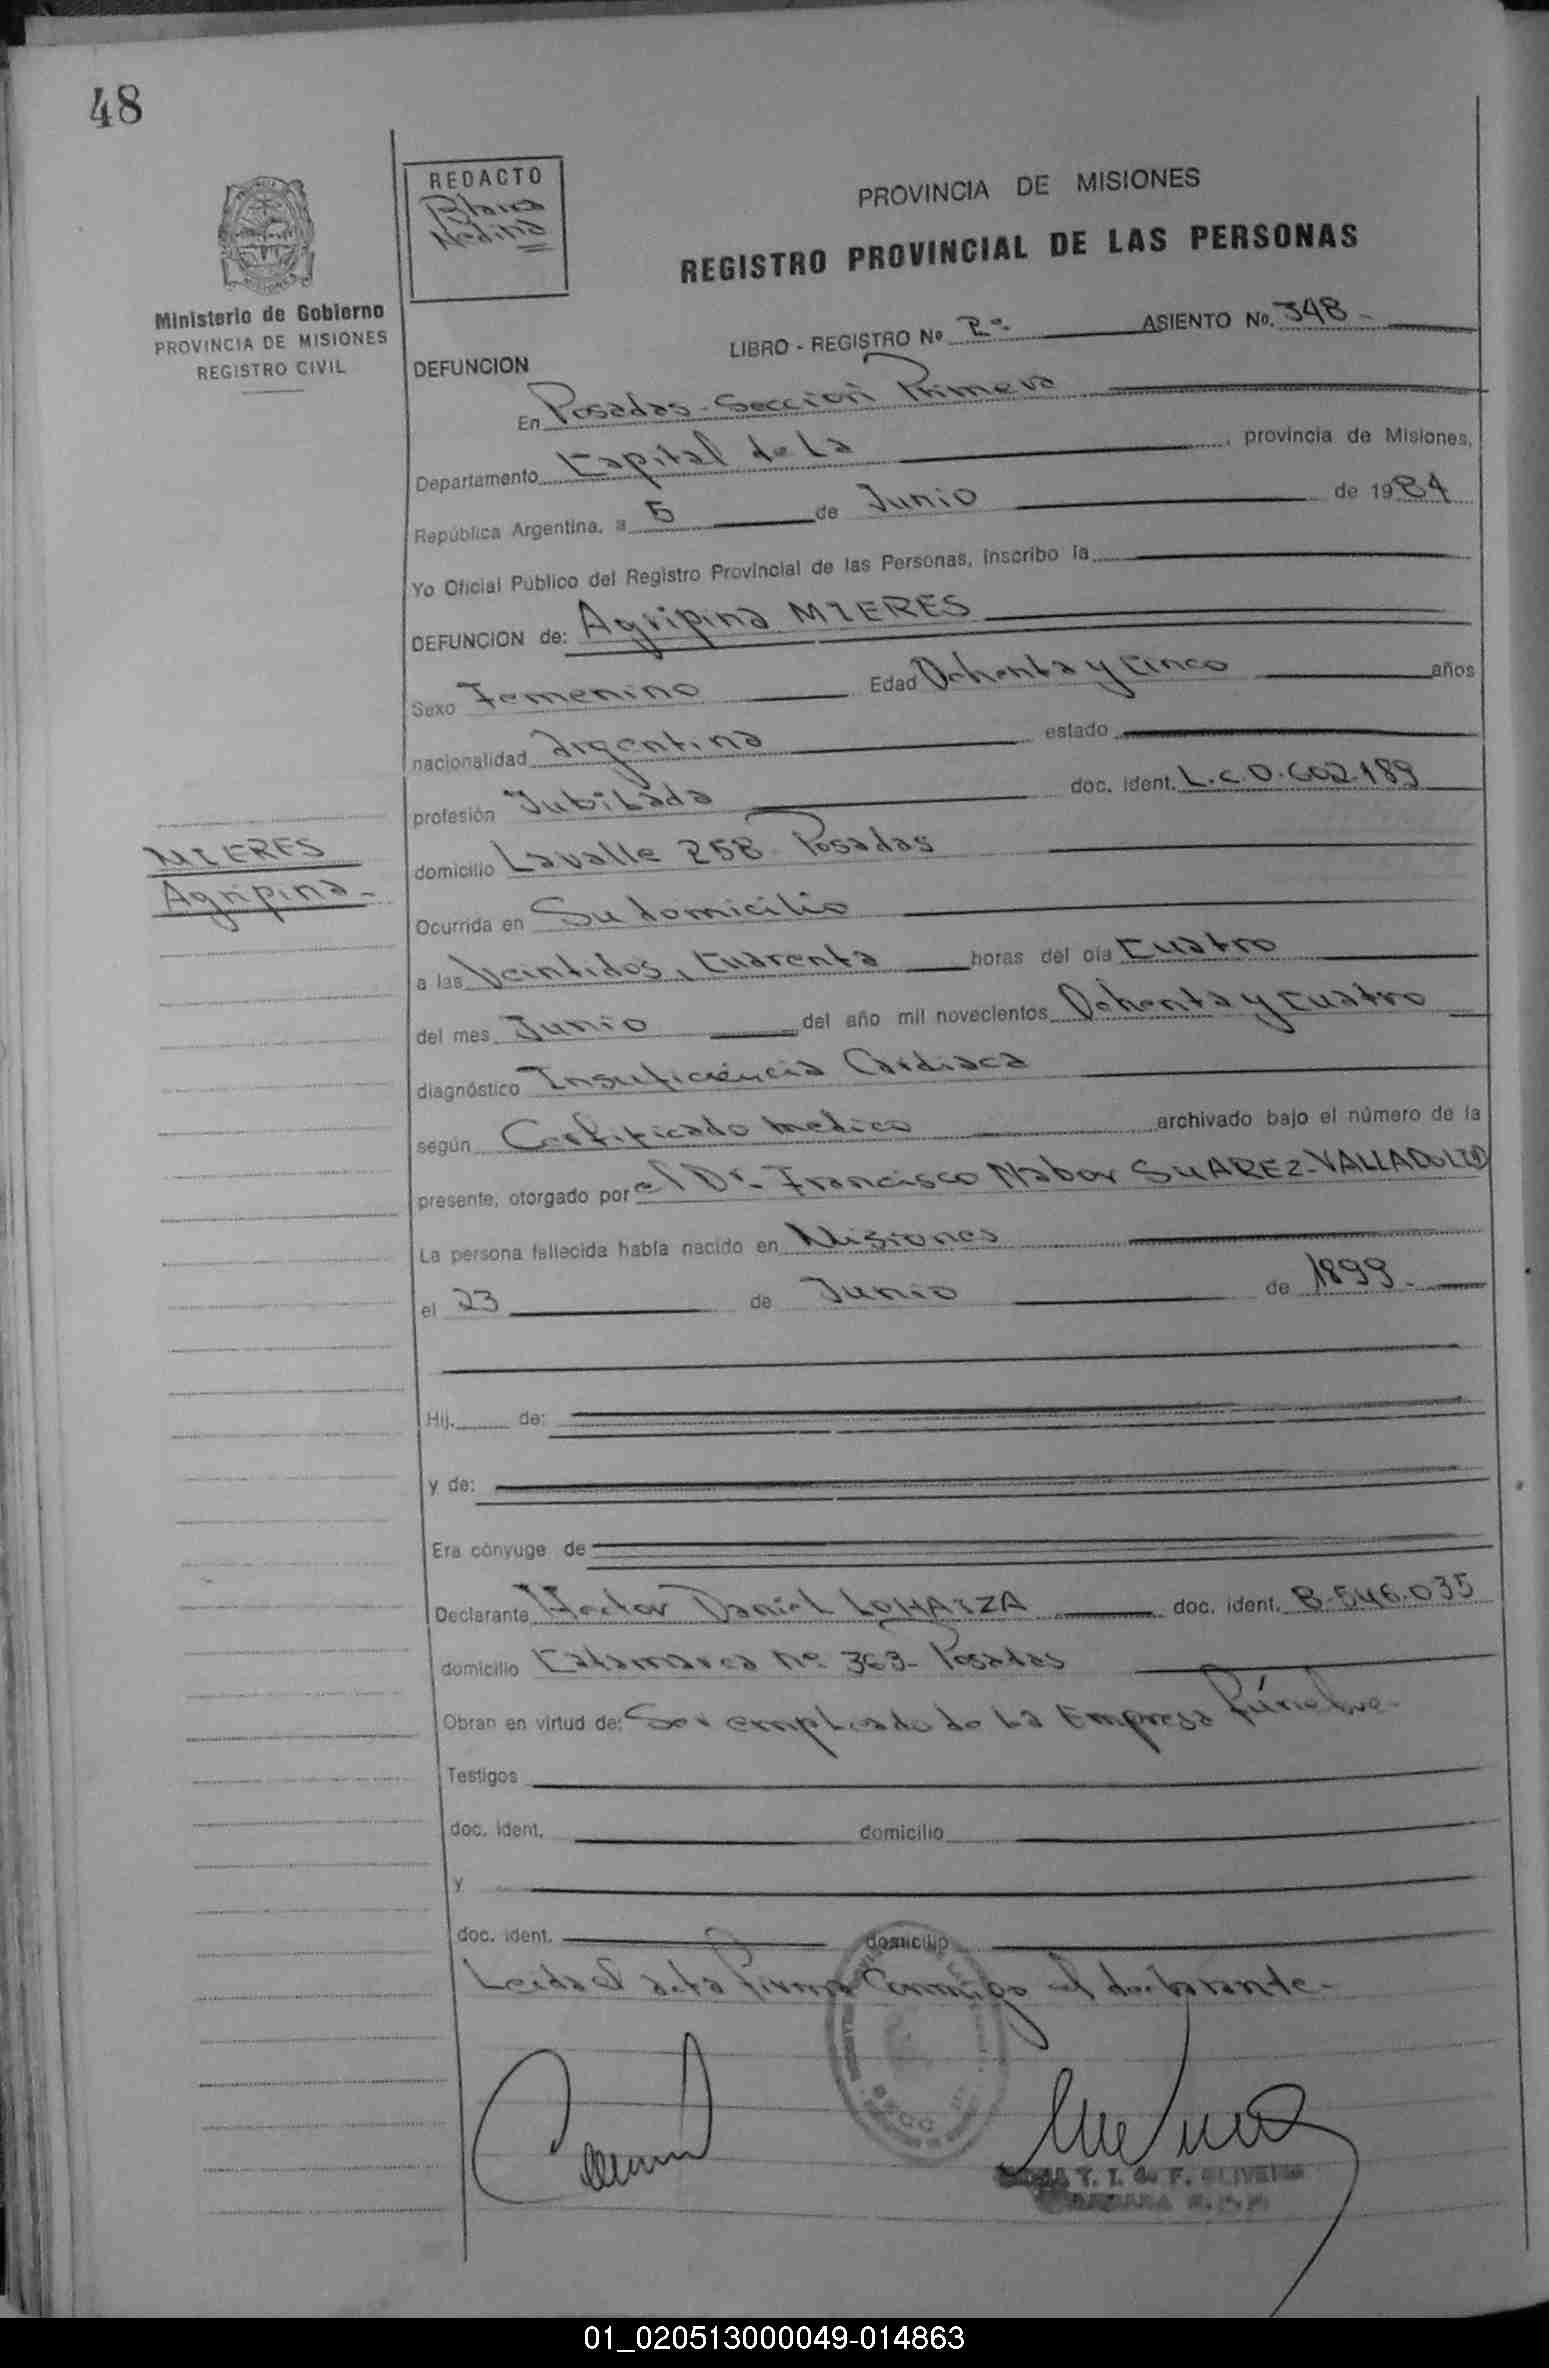 48
REDACTO
Blanca
Medina
PROVINCIA DE MISIONES
REGISTRO PROVINCIAL DE LAS PERSONAS
Ministerio de Gobierno
PROVINCIA DE MISIONES
REGISTRO CIVIL
LIBRO - REGISTRO Nº 2º ASIENTO No. 348-
DEFUNCION
En Posadas-Sección Primera
Departamento Capital de la, provincia de Misiones,
República Argentina, a 5 de Junio de 1984
Yo Oficial Público del Registro Provincial de las Personas, inscribo la
DEFUNCION de: Agripina MIERES
Sexo Femenino Edad Ochenta y cinco años
nacionalidad argentina estado
profesión Jubilada doc. ident. L.C.0.602.189
MIERES
Agripina-
domicilio Lavalle 258 Posadas
Ocurrida en Su domicilio
a las Veintidos, Cuarenta horas del día Cuatro
del mes Junio del año mil novecientos Ochenta y cuatro
diagnóstico Insuficiencia Cardiaca
según Certificado medico archivado bajo el número de la
presente, otorgado por el Dr. Francisco Nabor SUAREZ-VALLADOLID
La persona fallecida había nacido en Misiones
el 23 de Junio de 1899.
Hij. de:
y de:
Era cónyuge de
Declarante Hector Daniel LOMAIZA doc. ident. 8.546.035
domicilio Catamarca Nº 363- Posadas
Obran en virtud de: Ser empleado de la Empresa fúnebre-
Testigos
doc. ident. domicilio
y
doc. ident. domicilio
Leida el acta firma Conmigo el declarante-
T. I. de F. OLIVEIRA
01_020513000049-014863